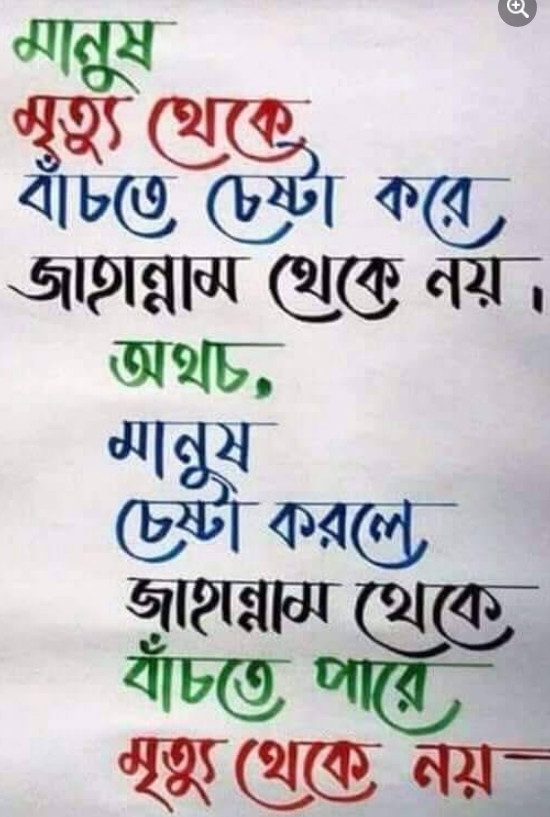 মানুষ
মৃত্যু থেকে
বাঁচতে চেষ্টা করে
জাহান্নাম থেকে নয় ।
অথচ,
মানুষ
চেষ্টা করলে
জাহান্নাম থেকে
বাঁচতে পারে
মৃত্যু থেকে নয়